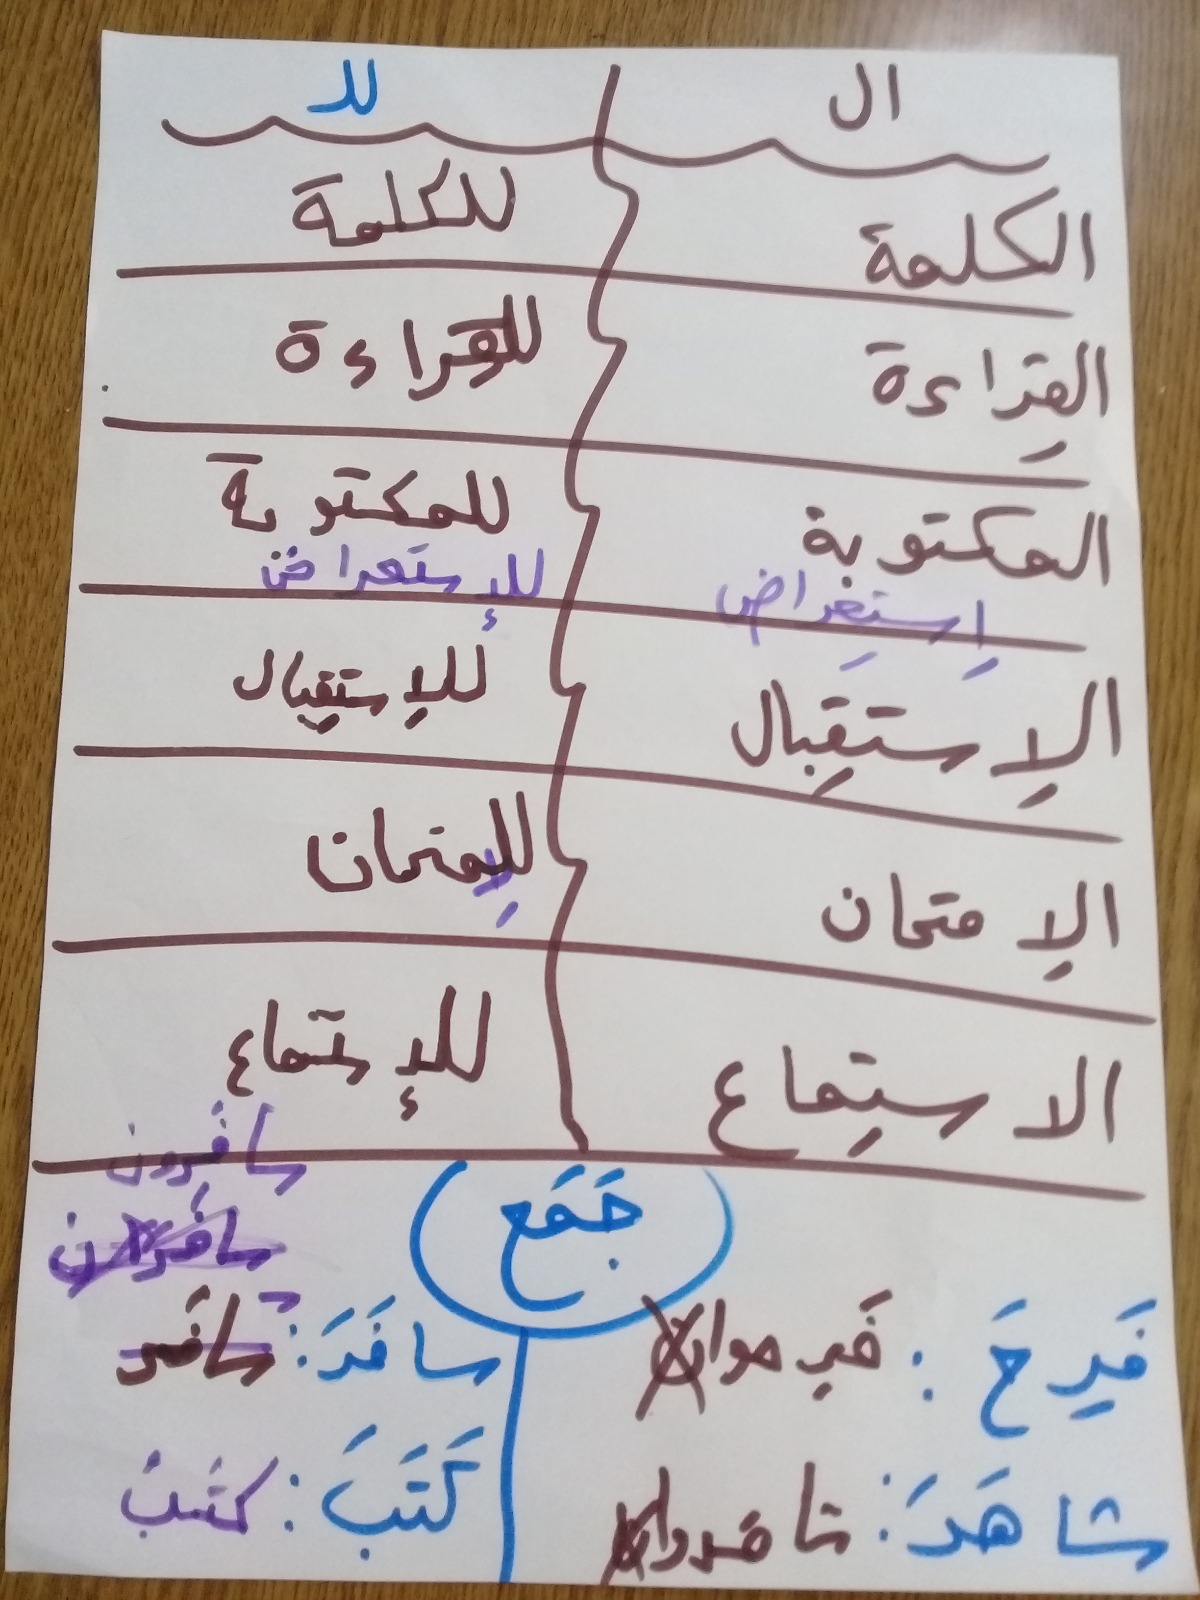 ال للـ
الكلمة للكلمة
القِراءة للقراءة
المكتوبة للمكتوبة
اِستِعراض للإستعراض
الاِستِقبال للاِستِقبال
الاِمتحان للاِمتحان
الاستِماع للإستماع
جَمَع
سافَرون
فَرِحَ : فَرِحوا سافَرَ : سافَر
شاهَدَ : شاهدوا كَتَبَ : كتب